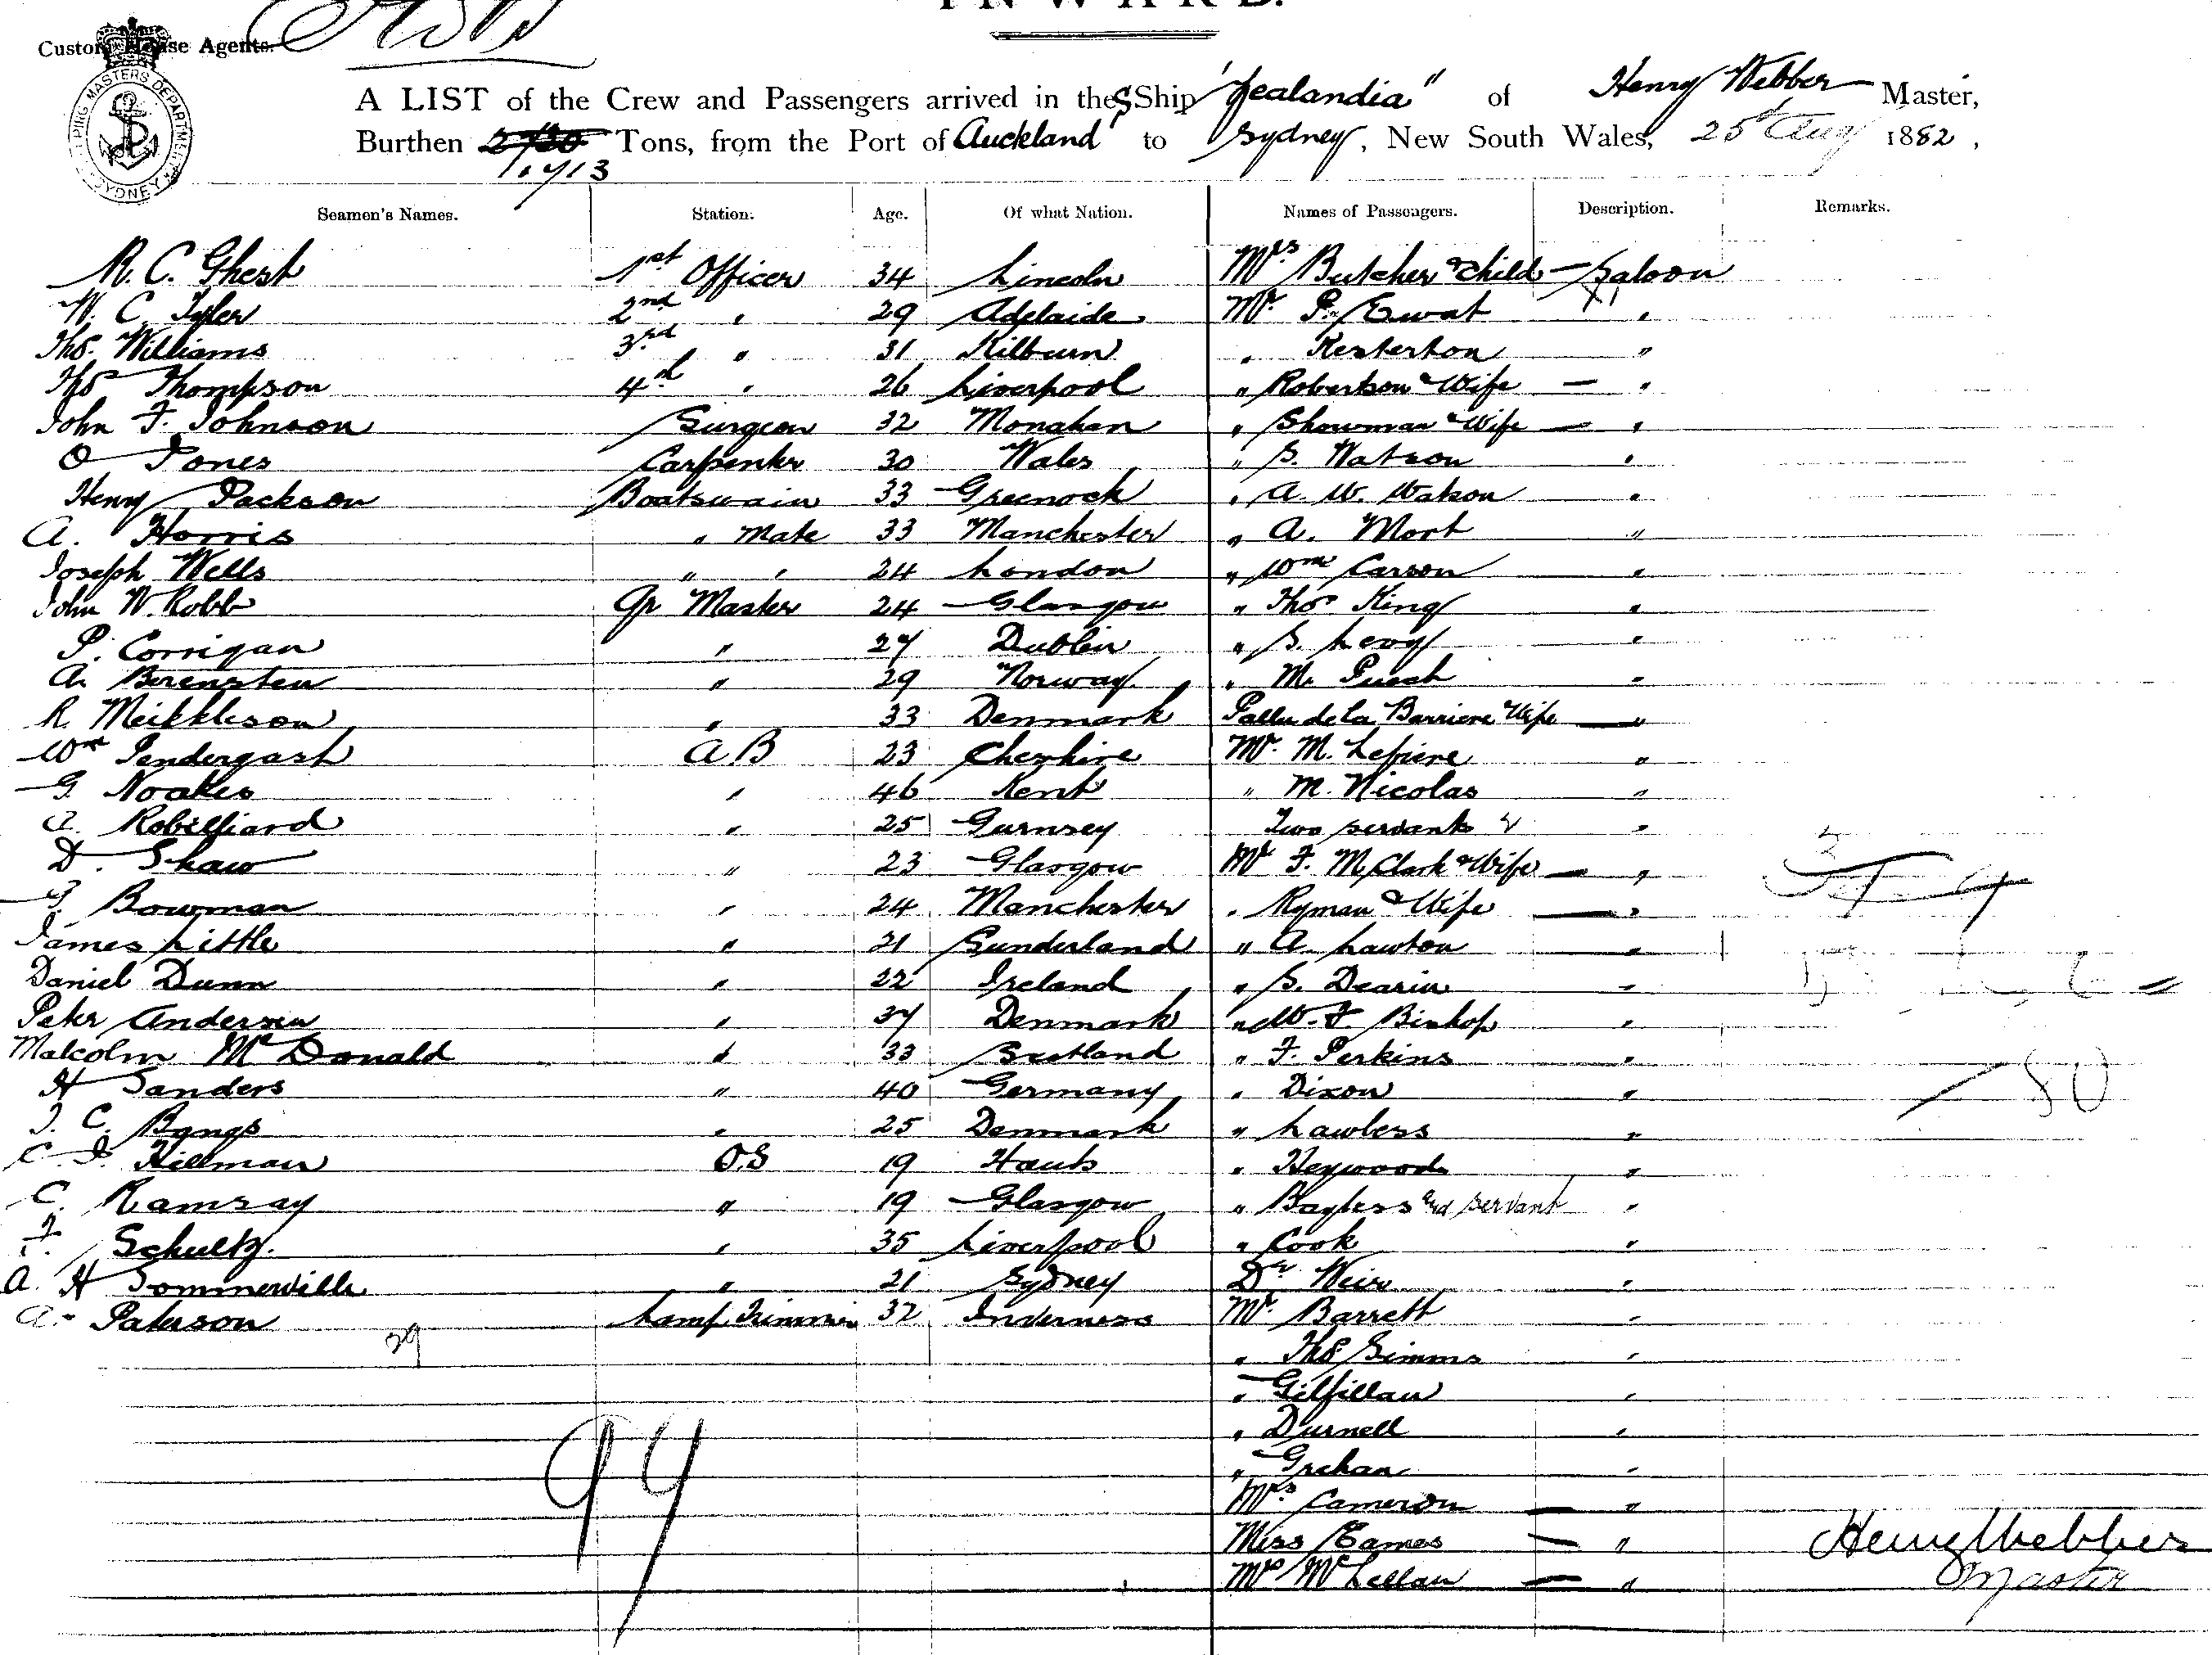 INWARD.
Custom House Agents.
SHIPPING MASTERS DEPARTMENT SYDNEY
A LIST of the Crew and Passengers arrived in the S Ship "Zealandia" of Henry Webber Master,
Burthen 2730 1,713 Tons, from the Port of Auckland to Sydney, New South Wales, 25th Aug 1882,
Seamen's Names. Station. Age. Of what Nation. Names of Passengers. Description. Remarks.
R. C. Ghest 1st Officer 34 Lincoln Mrs Butcher & Child — Saloon
W. C. Tyler 2nd " 29 Adelaide Mr P. Ewat "
Thos. Williams 3rd " 31 Kilburn " Kesterton "
Thos Thompson 4th " 26 Liverpool " Robertson & Wife — "
John F. Johnson Surgeon 32 Monahan " Showman & Wife — "
O Jones Carpenter 30 Wales " S. Watson "
Henry Jackson Boatswain 33 Greenock " A. W. Watson "
A. Horris " Mate 33 Manchester " A. Mort "
Joseph Wells " " 24 London " Wm Carson "
John W. Robb Qr Master 24 Glasgow " Thos King "
P. Corrigan " 27 Dublin " S. Levy "
A. Berensten " 29 Norway " M. "
R. Meikkleson " 33 Denmark Pallu de la Barriere & Wife — "
Wm Pendergash A B 23 Cheshire Mr. M. "
G. Noakes " 46 Kent " M. Nicolas "
A. Robilliard " 25 Gurnsey Two servants "
D. Shaw " 23 Glasgow Mr F. McClark & Wife — "
Bowman " 24 Manchester " Ryman & Wife — "
James Little " 21 Sunderland " A. Lawton "
Daniel Dunn " 22 Ireland " S. Dearin "
Peter Andersen " 37 Denmark " W. F. Bishop "
Malcolm McDonald " 33 Scotland " F. Perkins "
H Sanders " 40 Germany " Dixon "
J. C. " 25 Denmark " Lawless "
C. J. Hillman O.S 19 Hants " Heywood "
C. Ramsay " 19 Glasgow " Bayless and servant "
F. Schultz. " 35 Liverpool " Cook "
A. H Sommerville " 21 Sydney Dr Weir "
A. Paterson Lamp Trimmer 32 Inverness Mr Barrett "
29 " Thos Simms "
" Gilfillan "
" Durnell "
" Grehan "
Mrs Cameron — "
Miss Eames — "
Mrs McLellan — "
80
94
Henry Webber
Master